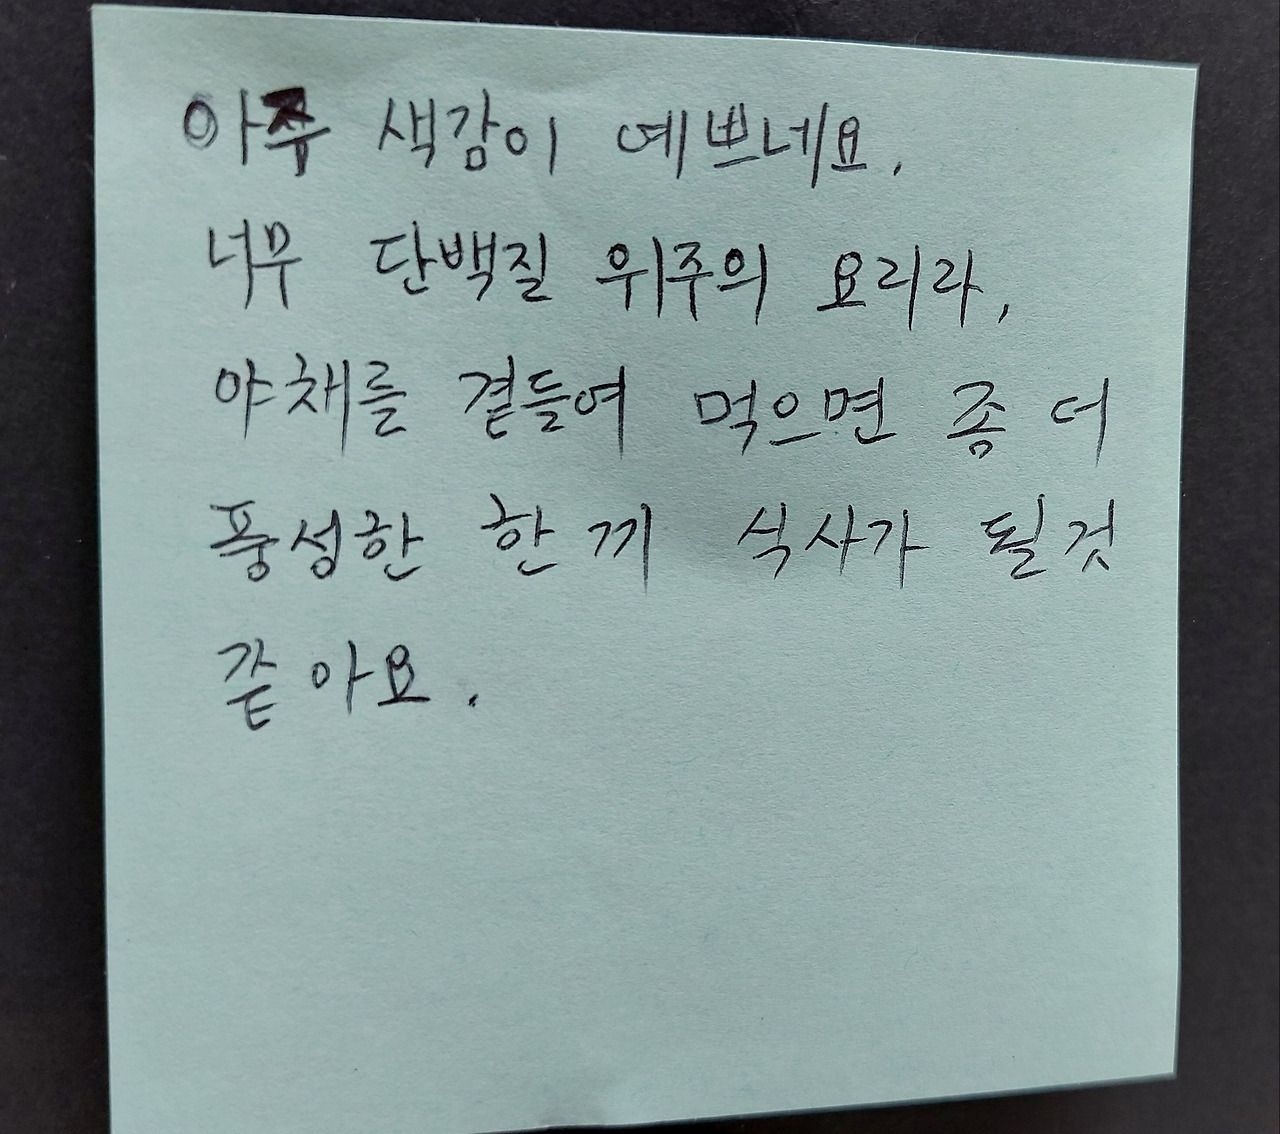 아주 색감이 예쁘네요.
너무 단백질 위주의 요리라,
야채를 곁들여 먹으면 좀 더
풍성한 한 끼 식사가 될것
같아요.